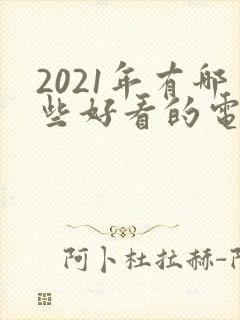 2021年有哪
些好看的電
阿卜杜拉赫-阿